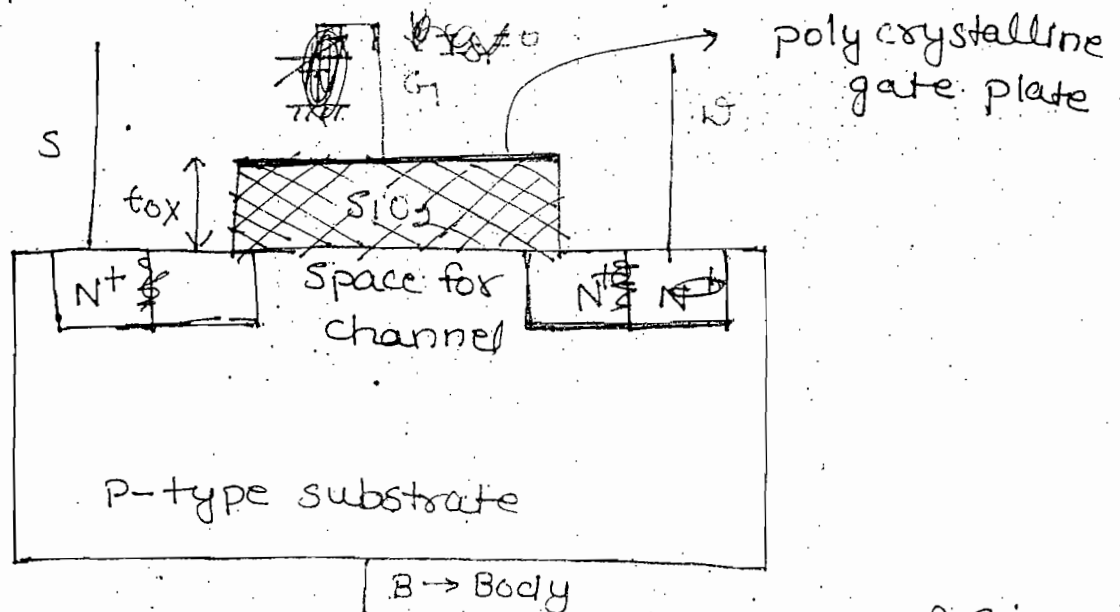 poly crystalline
gate plate
G
S
D
tox
SiO2
N+
Space for
channel
N+
P-type substrate
B → Body